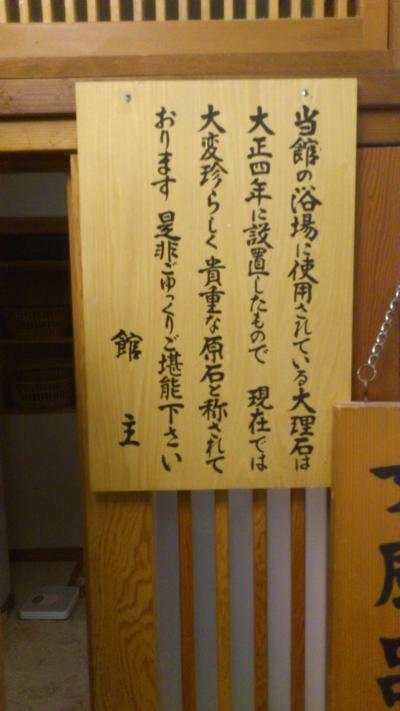 当館の浴場に使用されている大理石は
大正四年に設置したもので 現在では
大変珍らしく貴重な原石と称されて
おります 是非ごゆっくりご堪能下さい
館主